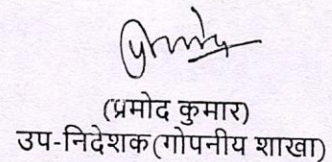 (प्रमोद कुमार)
उप-निदेशक(गोपनीय शाखा)